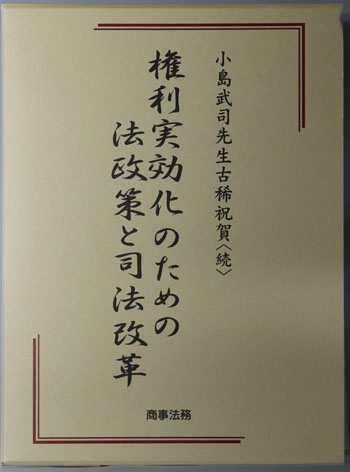 小島武司先生古稀祝賀〈続〉
権利実効化のための
法政策と司法改革
商事法務